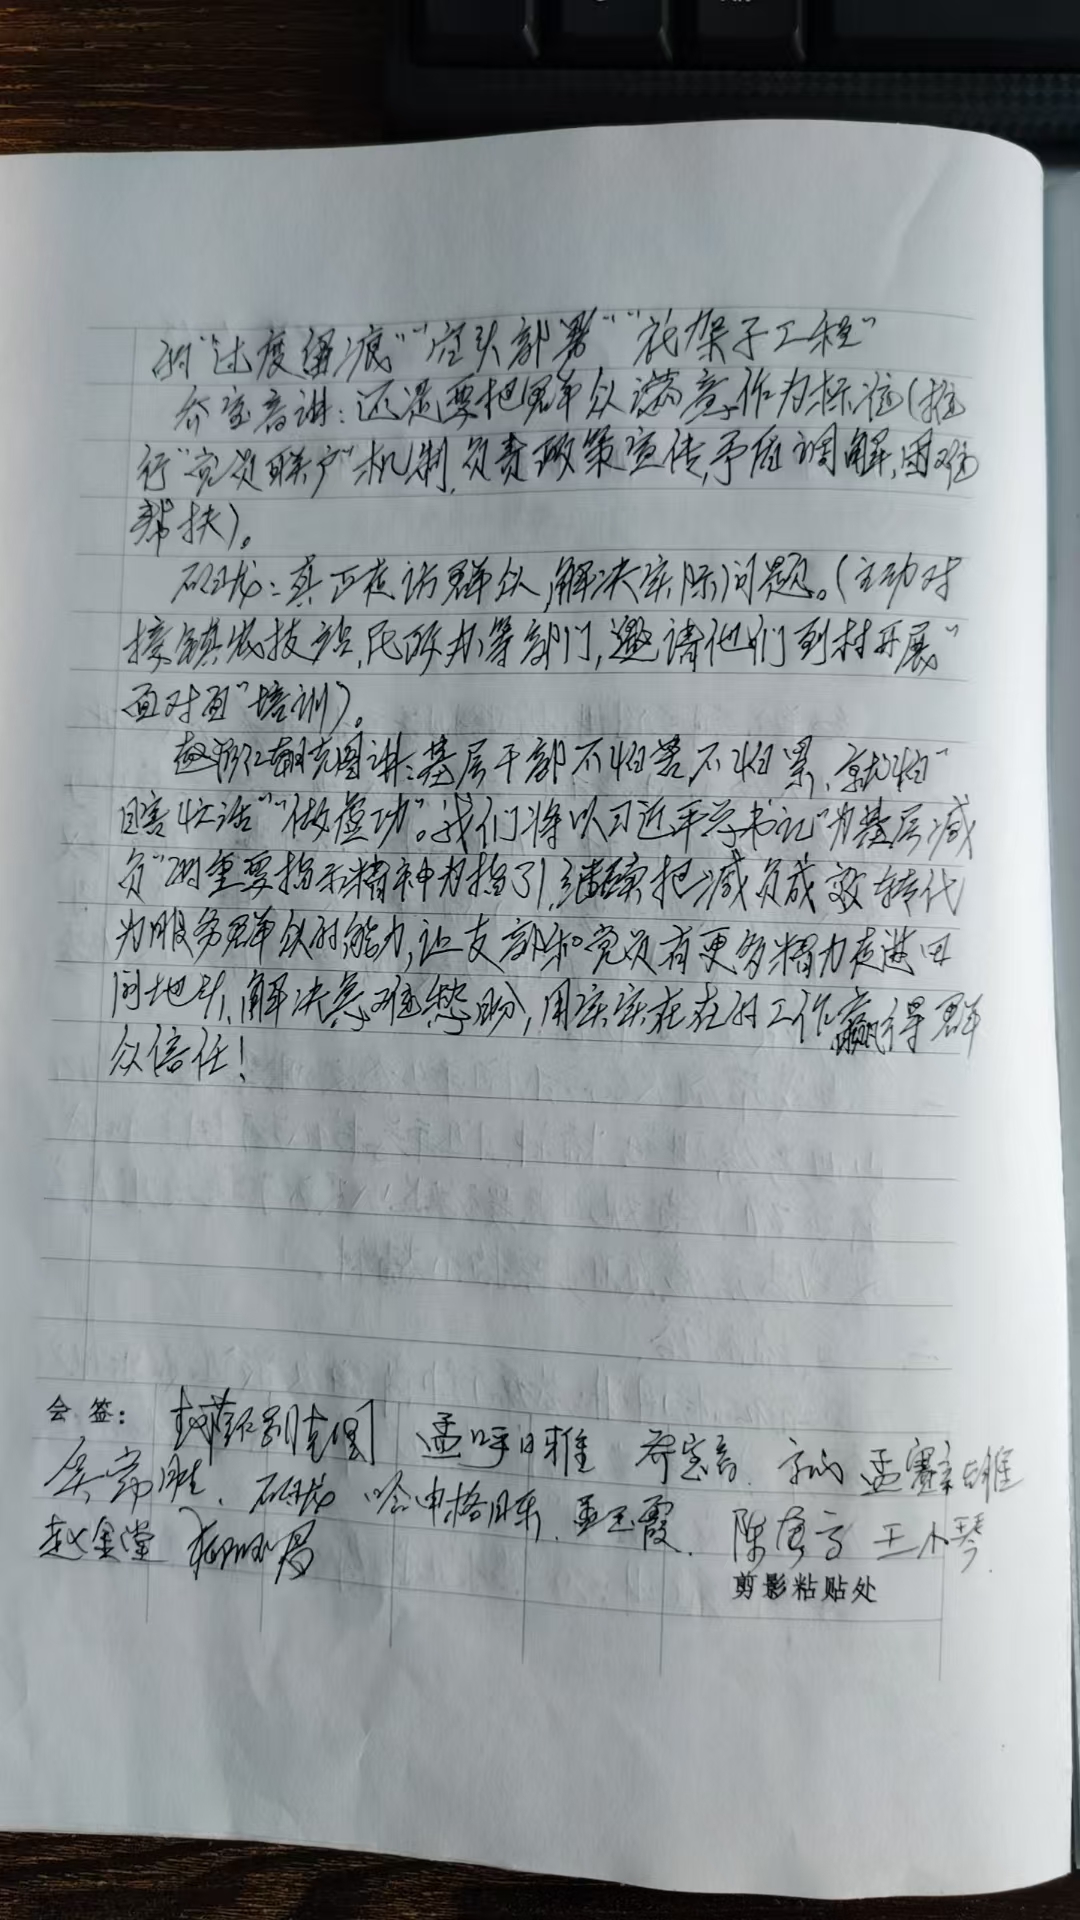 的“过度留痕”“空头部署”“花架子工程”
乔宝音讲:还是要把群众满意作为标准(推
行“党员联户”机制,负责政策宣传,矛盾调解,困难
帮扶)。
:真正走访群众,解决实际问题。(主动对
接镇农技站,民政办等部门,邀请他们到村开展“
面对面”培训)。
朝克图讲:基层干部不怕苦不怕累,就怕“
忙活”“做虚功”。我们将以习近平总书记“为基层减
负”的重要指示精神为指引,继续把减负成效转化
为服务群众的能力,让支部和党员有更多精力走进田
间地头,解决急难愁盼,用实实在在的工作赢得群
众信任!
会签: 朝克图 孟呼日雅 乔宝音 孟赛雅
吴常胜 哈申格日乐 孟玉霞 陈 王小琴
赵金堂
剪影粘贴处